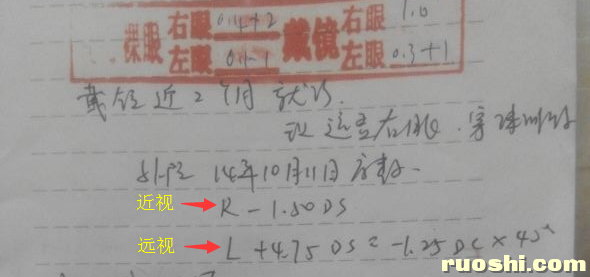 裸眼 右眼 0.4+2 戴镜 右眼 1.0
左眼 0.1-1 左眼 0.3+1
戴镜近2个月就诊.
议遮盖右眼.穿珠训练
外院 14年10月11日
近视 R -1.50 DS
远视 L +4.75 DS = -1.25 DC × 45°
ruoshi.com